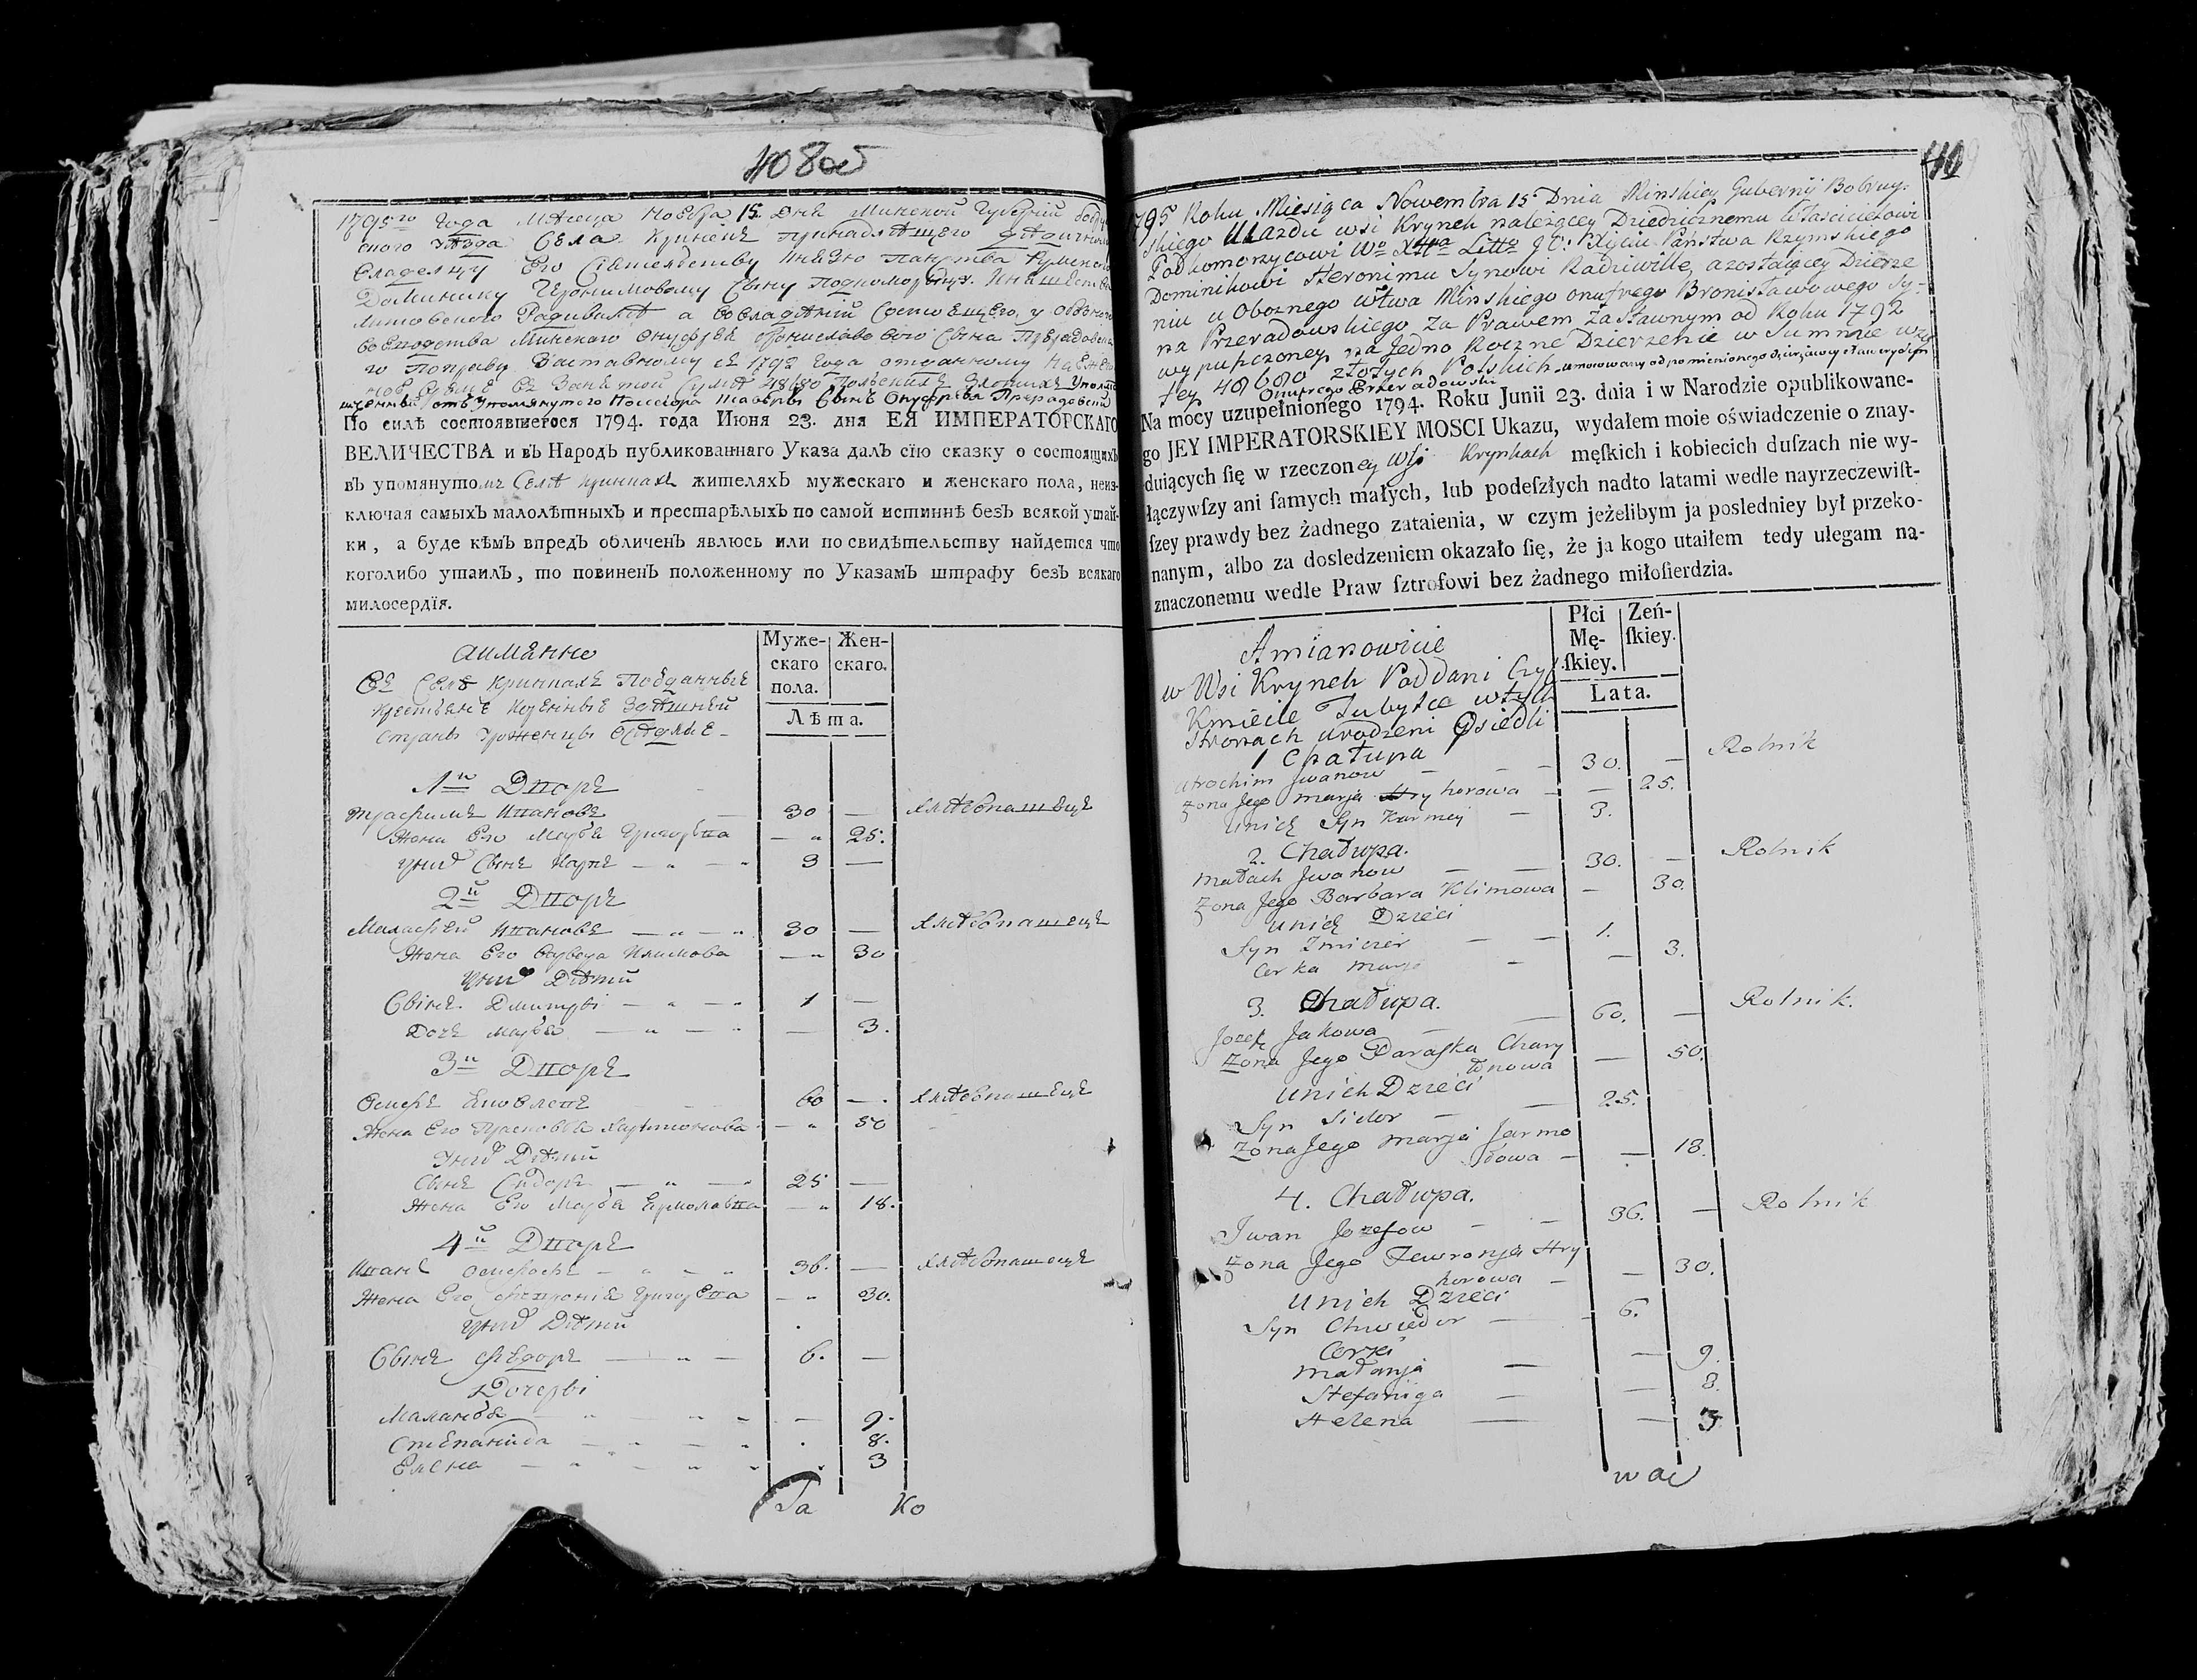 408об
1795го Года Мѣсяца Ноебра 15 Днѣ Минской Губернїй
ского уѣзда Села Кринокъ принадлѣщего дѣдичному
Владелцу Его Сїятелству Инязю Панства Румскаго
Доминику Герониму Сыну Подкоморыцу
Литовского Радивилѣ а во владѣнїй состоещего у обозного
воеводства Минского Онуфрея Бронислововсого Сына
го поправу Заставному съ 1792 Года отданному
въ Занѣтой сумѣ 48680 польскихъ Злотыхъ Уполно
отъ упомянутого Посесора Сынъ Онуфрея Прерадовскій
По силѣ состоявшегося 1794. года Июня 23. дня ЕЯ ИМПЕРАТОРСКАГО
ВЕЛИЧЕСТВА и въ Народѣ публикованнаго Указа далъ сїю сказку о состоящихъ
въ упомянутомъ Селѣ Кринкахъ жителяхъ мужескаго и женскаго пола, неиз-
ключая самыхъ малолѣтныхъ и престарѣлыхъ по самой истиннѣ безъ всякой утай-
ки, а буде кѣмъ впредъ обличенъ явлюсь или по свидѣтельству найдется что
коголибо утаилъ, то повиненъ положенному по Указамъ штрафу безъ всякаго
милосердїя.
Муже- Жен-
скаго скаго.
пола.
Лѣта.
аимѣнно
Въ Селѣ Кринкахъ Подданныѣ
Крестьянѣ Здѣшней
страны Уроженцы Осѣдлыѣ
1й Дворъ
Трахимъ Ивановъ 30 — хлѣбопашецъ
Жена Его Марья Григорьева — 25.
у них Сынъ Карпъ 3 —
2й Дворъ
Малафей Ивановъ 30 — хлѣбопашецъ
Жена Его Варвара Климова — 30
у них Дѣтїй
Сынъ Дмитрїй 1 —
Дочь Марья — 3.
3й Дворъ
Осифъ Яковлевъ 60 — хлѣбопашецъ
Жена Его Прасковья Харитонова — 50
у них Дѣтїй
Сынъ Сидоръ 25 —
Жена Его Марья Ермолаева — 18.
4й Дворъ
Иванъ Осифовъ 36. — хлѣбопашецъ
Жена Его Григорева — 30.
у них Дѣтїй
Сынъ Федоръ 6. —
Дочеры
Маланья — 9.
Степанида — 8.
Елена — 3
Та Ко
40
1795 Roku Miesiąca Nowembra 15 Dnia Minskiey Gubernij Bobruy-
skiego Uiazdu wsi Krynek należącey Dziedzicznemu Właścicielowi
Podkomorzycowi Wo Xtwa Litto J O: Xięciu Państwa Rzymskiego
Dominikowi Heronimu Synowi Radziwille, a zostaiącey Dzierże
niu u Oboznego wtwa Minskiego Onufrego Bronisławowego Sy-
na Przeradowskiego Za Prawem Zastawnym od Roku 1792
wypuszczoney na Jedno Roczne Dzierzenie w Summie wzię
tey 48680 złotych Polskich umocowany od pomienionego dzierżawcy
Onufrego Przeradowski
Na mocy uzupełnionego 1794. Roku Junii 23. dnia i w Narodzie opublikowane-
go JEY IMPERATORSKIEY MOSCI Ukazu, wydałem moie oświadczenie o znay-
duiących ſię w rzeczoney Wsi Krynkach męſkich i kobiecich duſzach nie wy-
łączywſzy ani ſamych małych, lub podeſzłych nadto latami wedle nayrzeczewiſt-
ſzey prawdy bez żadnego zataienia, w czym jeżelibym ja posledniey był przeko-
nanym, albo za dosledzeniem okazało ſię, że ja kogo utaiłem tedy ulegam na-
znaczonemu wedle Praw ſztrofowi bez żadnego miłoſierdzia.
Płci Żeń-
Mę- ſkiey.
ſkiey.
Lata.
A mianowicie
w Wsi Krynek Poddani Czyl
Kmiecie Tubylce w tych
Stronach urodzeni Osiedli
1 Chałupa
Atrochim Jwanow 30. — Rolnik
Żona Jego Marja Hryhorowa — 25.
unich Syn Karniey 3.
2. Chałupa.
Małach Jwanow 30. — Rolnik
Żona Jego Barbara Klimowa — 30.
unich Dzieci
Syn Zmicier 1.
Corka Marja — 3.
3. Chałupa.
Jozef Jakowa 60. — Rolnik.
Żona Jego Paraſka Chary
tonowa — 50.
unich Dzieci
Syn Sidor 25.
Żona Jego Marja Jarmo
łowa — 18.
4. Chałupa.
Jwan Jozefow 36. — Rolnik
Żona Jego Jewronja Hry
horowa — 30.
unich Dzieci
Syn Chwiedor 6.
Corki
Małanja — 9.
Stefaniga — 8.
Helena — 3